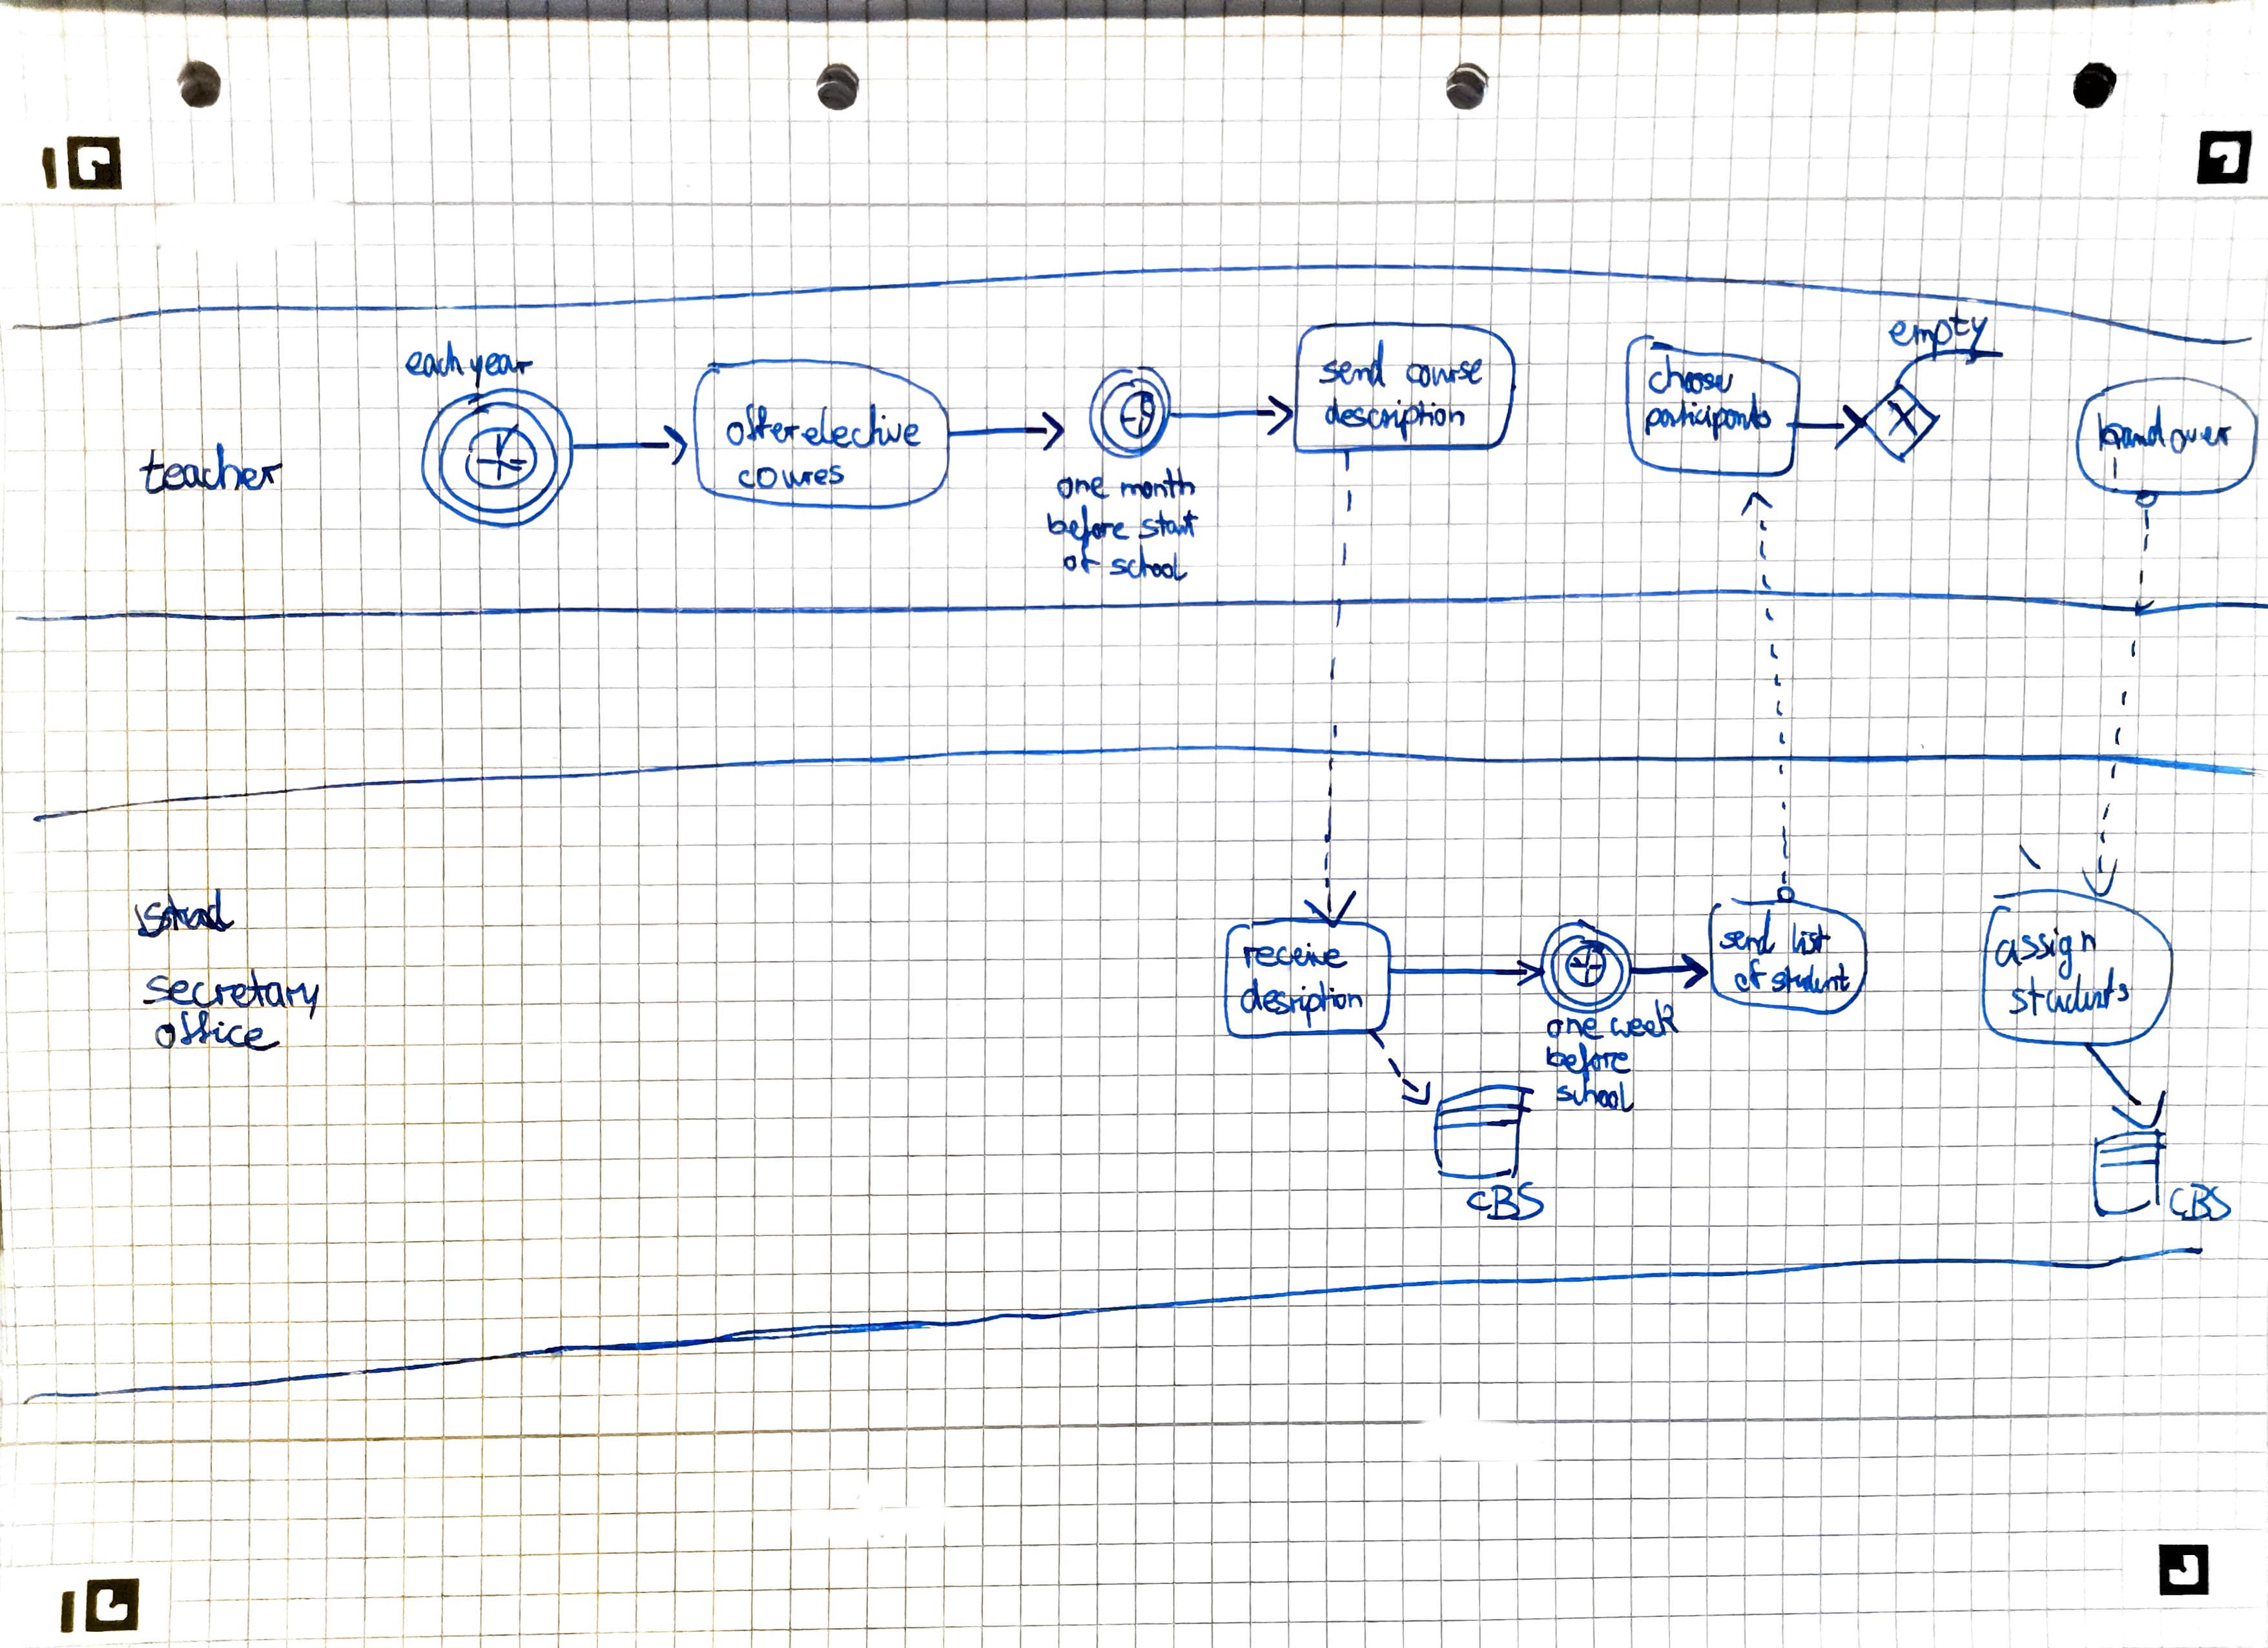 each year
teacher
offer elective
coures
one month
before start
of school
send course
description
choose
participants
empty
hand over
secretary
office
receive
desription
CBS
one week
before
school
send list
of student
assign
students
CBS